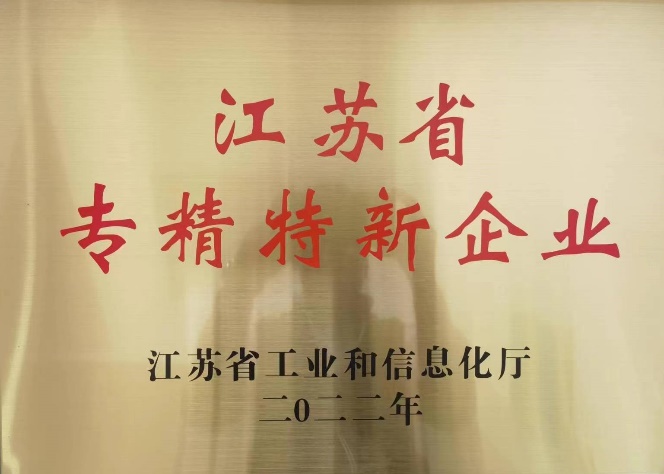 江苏省
专精特新企业
江苏省工业和信息化厅
二0二二年